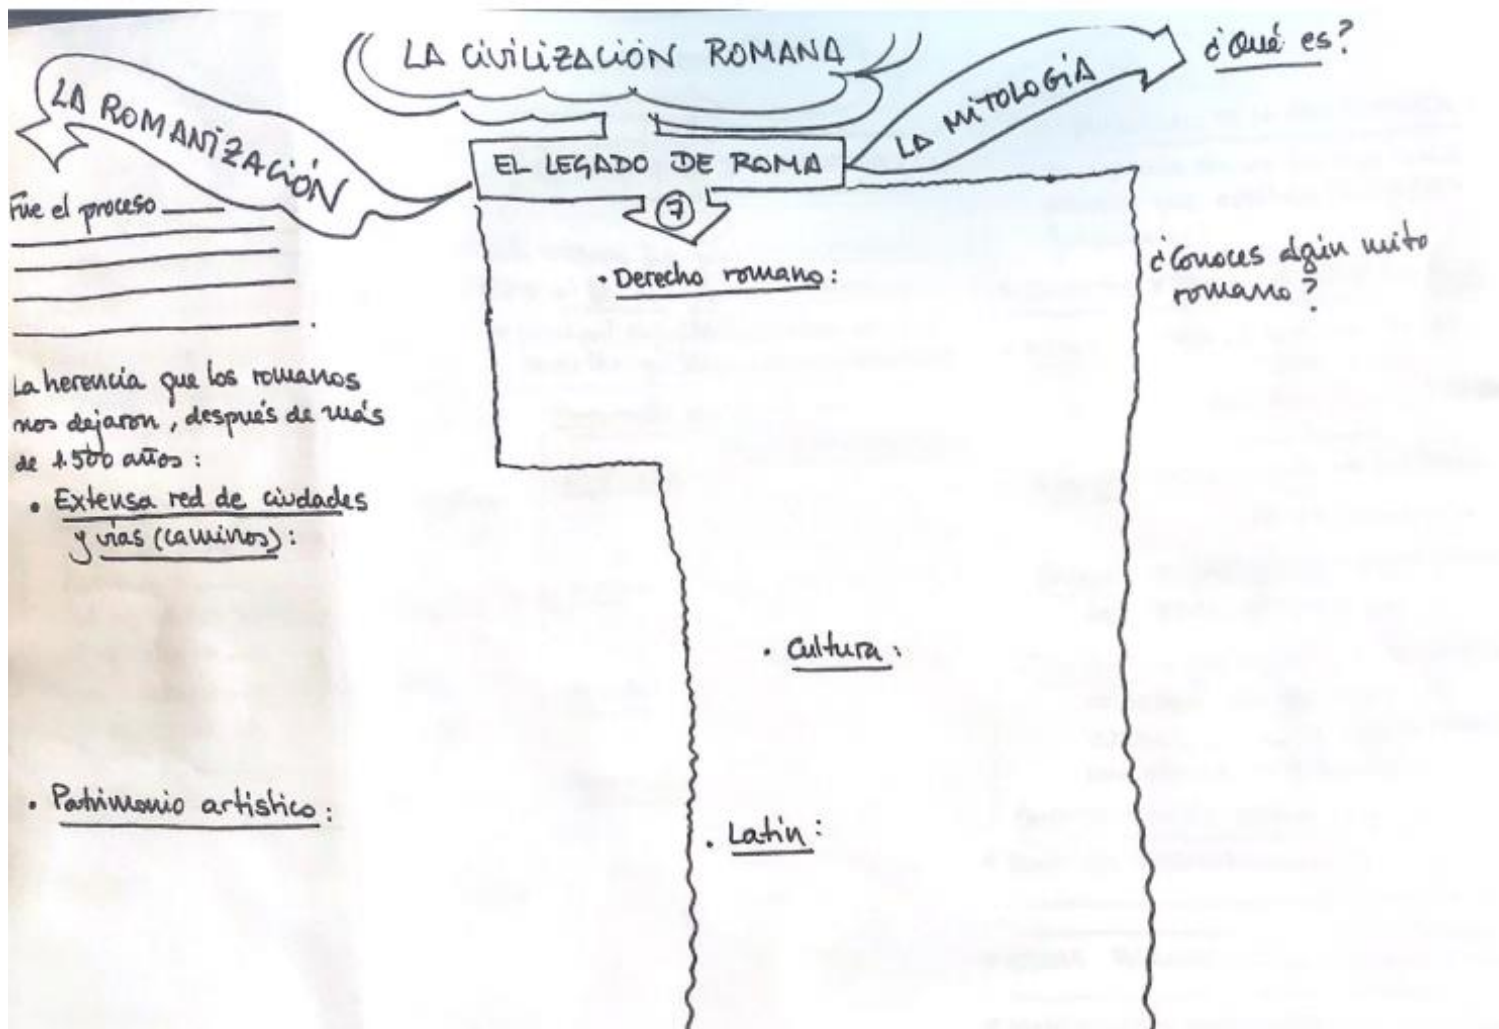 LA CIVILIZACIÓN ROMANA
EL LEGADO DE ROMA
7
LA ROMANIZACIÓN
Fue el proceso
La herencia que los romanos
nos dejaron, después de más
de 1.500 años:
• Extensa red de ciudades
y vías (caminos):
• Patrimonio artístico:
• Derecho romano:
• Cultura:
• Latín:
LA MITOLOGÍA
¿Qué es?
¿Conoces algún mito
romano?